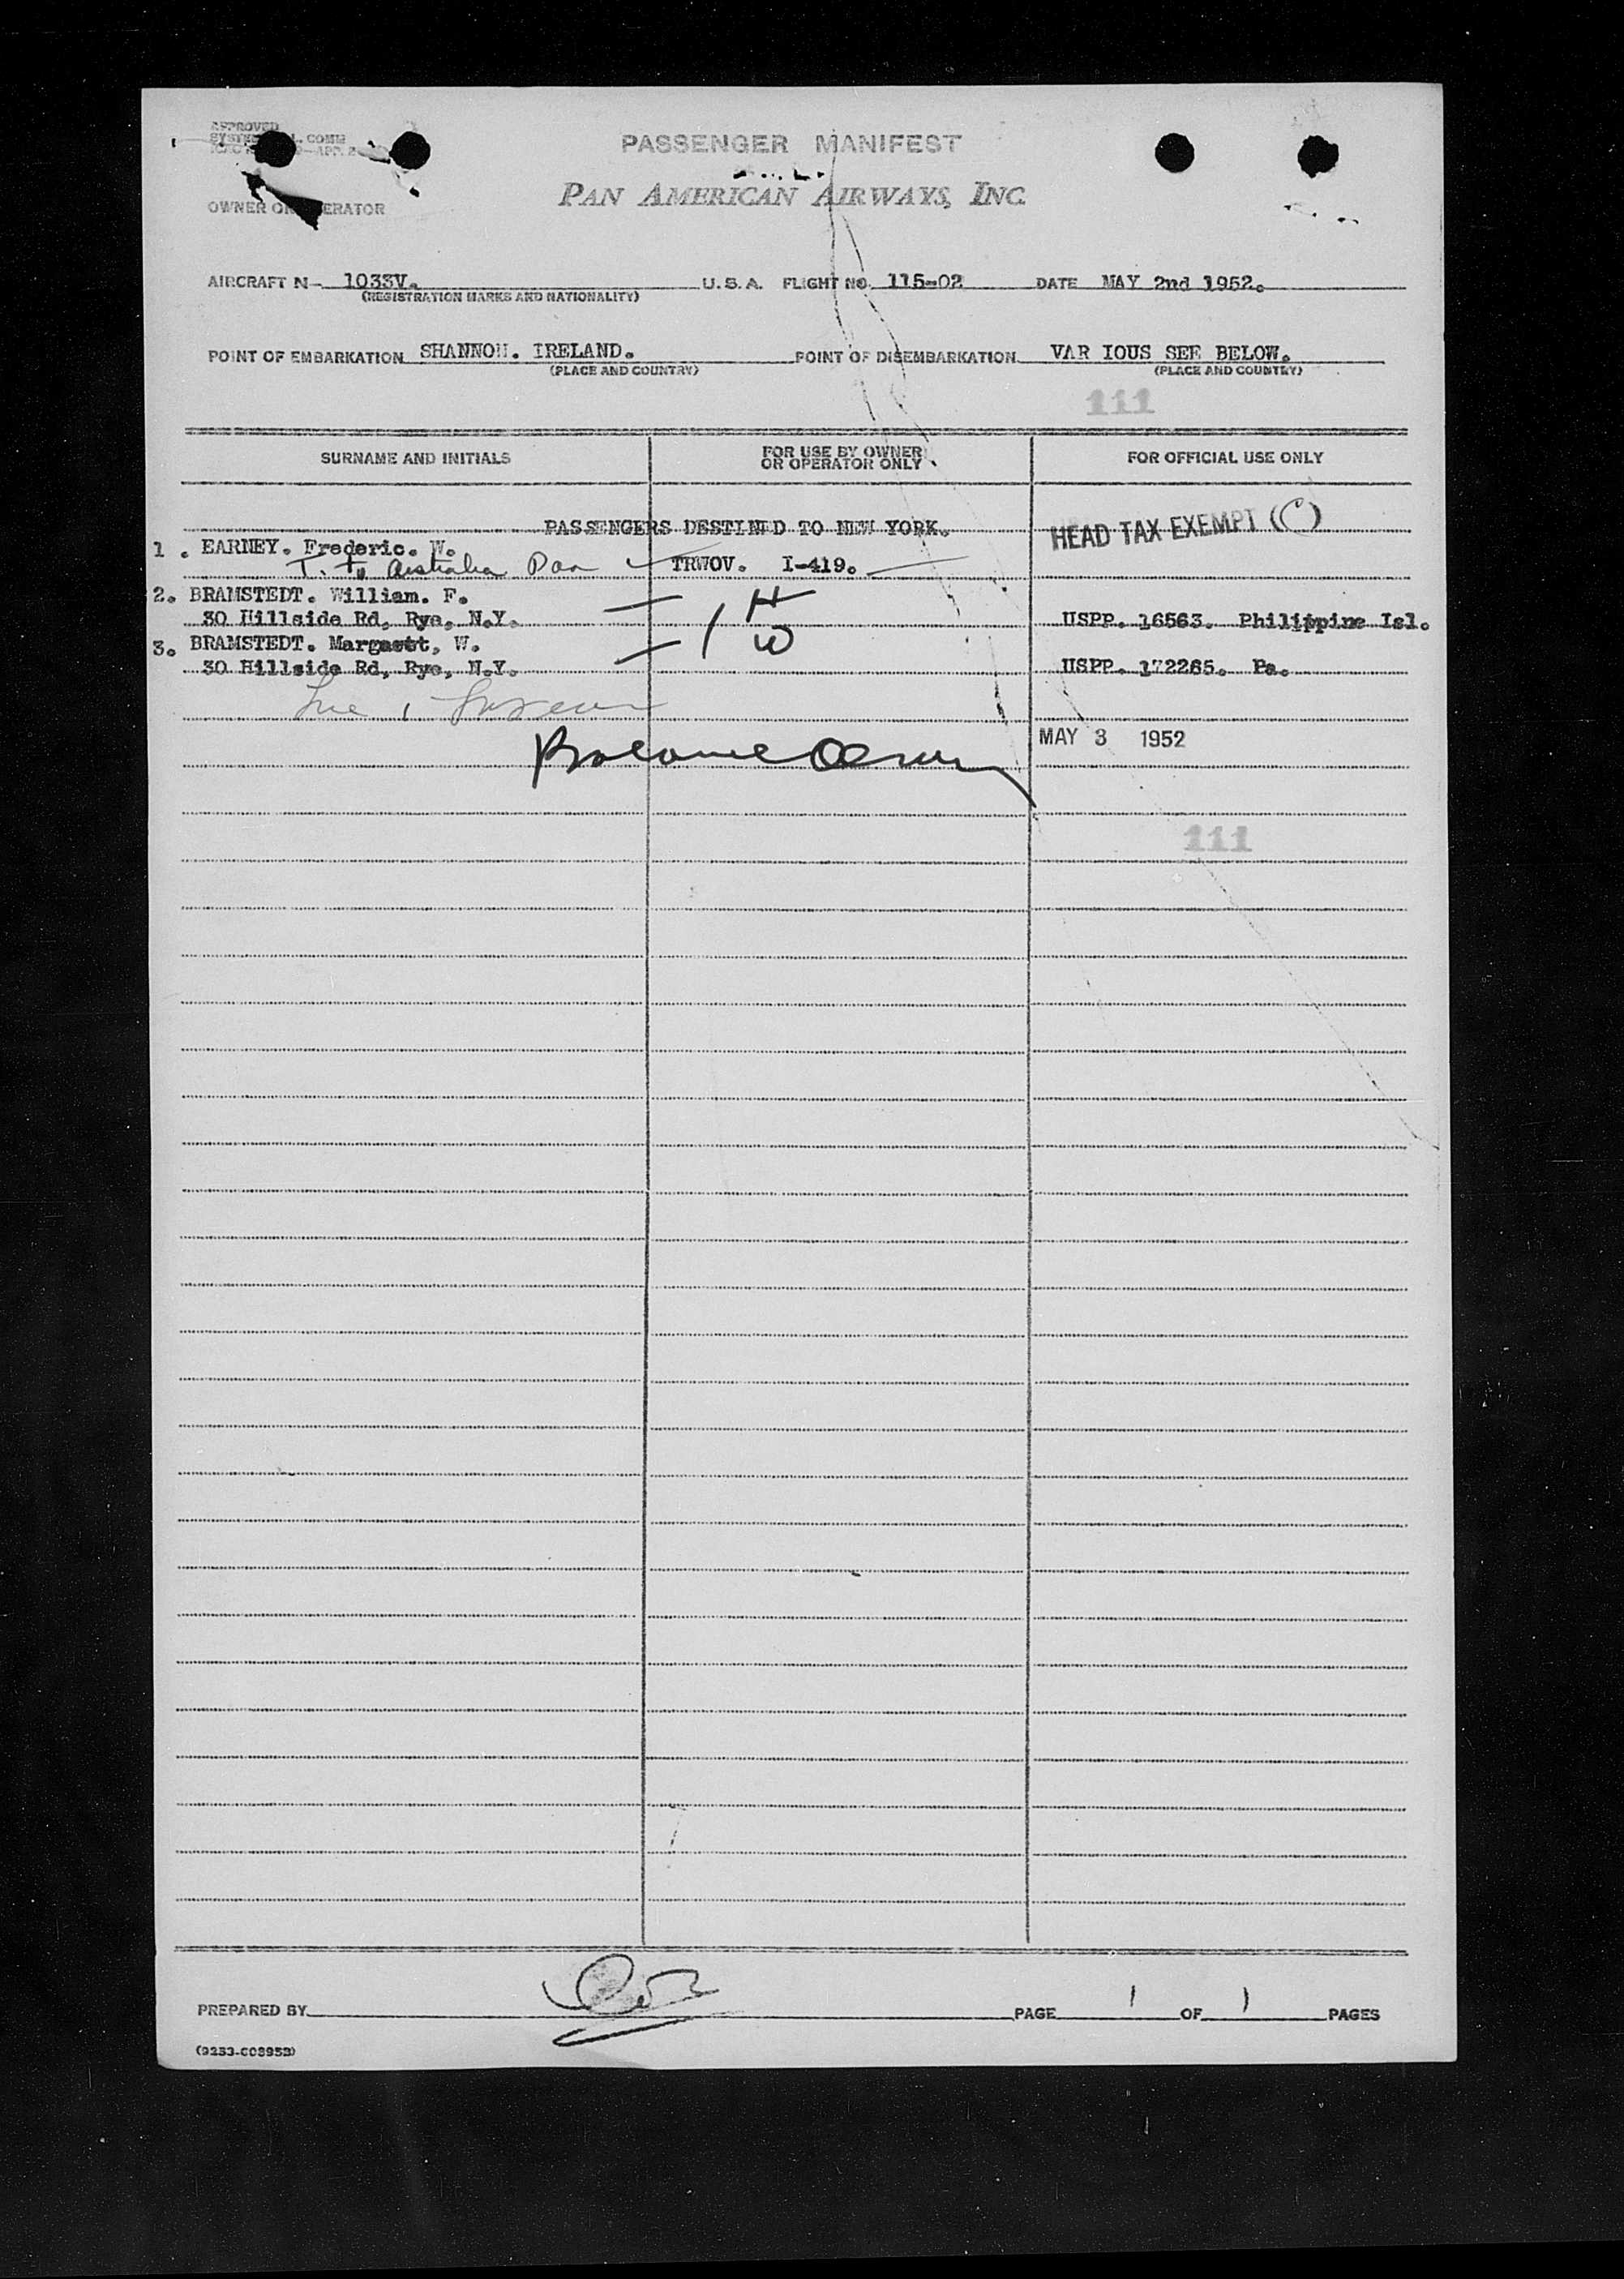 APPROVED
COMM
OWNER OR OPERATOR
PASSENGER MANIFEST
PAN AMERICAN AIRWAYS, INC.
AIRCRAFT N- 1033V. U.S.A. FLIGHT NO. 115-02 DATE MAY 2nd 1952.
(REGISTRATION MARKS AND NATIONALITY)
POINT OF EMBARKATION SHANNON. IRELAND. POINT OF DISEMBARKATION VAR IOUS SEE BELOW.
(PLACE AND COUNTRY) (PLACE AND COUNTRY)
111
SURNAME AND INITIALS FOR USE BY OWNER OR OPERATOR ONLY FOR OFFICIAL USE ONLY
PASSENGERS DESTINED TO NEW YORK. HEAD TAX EXEMPT (C)
1 . EARNEY. Frederic. W.
T. to Australia Pan TRWOV. I-419.
2. BRAMSTEDT. William. F. H
30 Hillside Rd, Rye, N.Y. USPP. 16563. Philippine Isl.
3. BRAMSTEDT. Margaett, W. W
30 Hillside Rd, Rye, N.Y. USPP. 172265. Pa.
MAY 3 1952
111
PREPARED BY PAGE 1 OF 1 PAGES
(9253-C0395B)